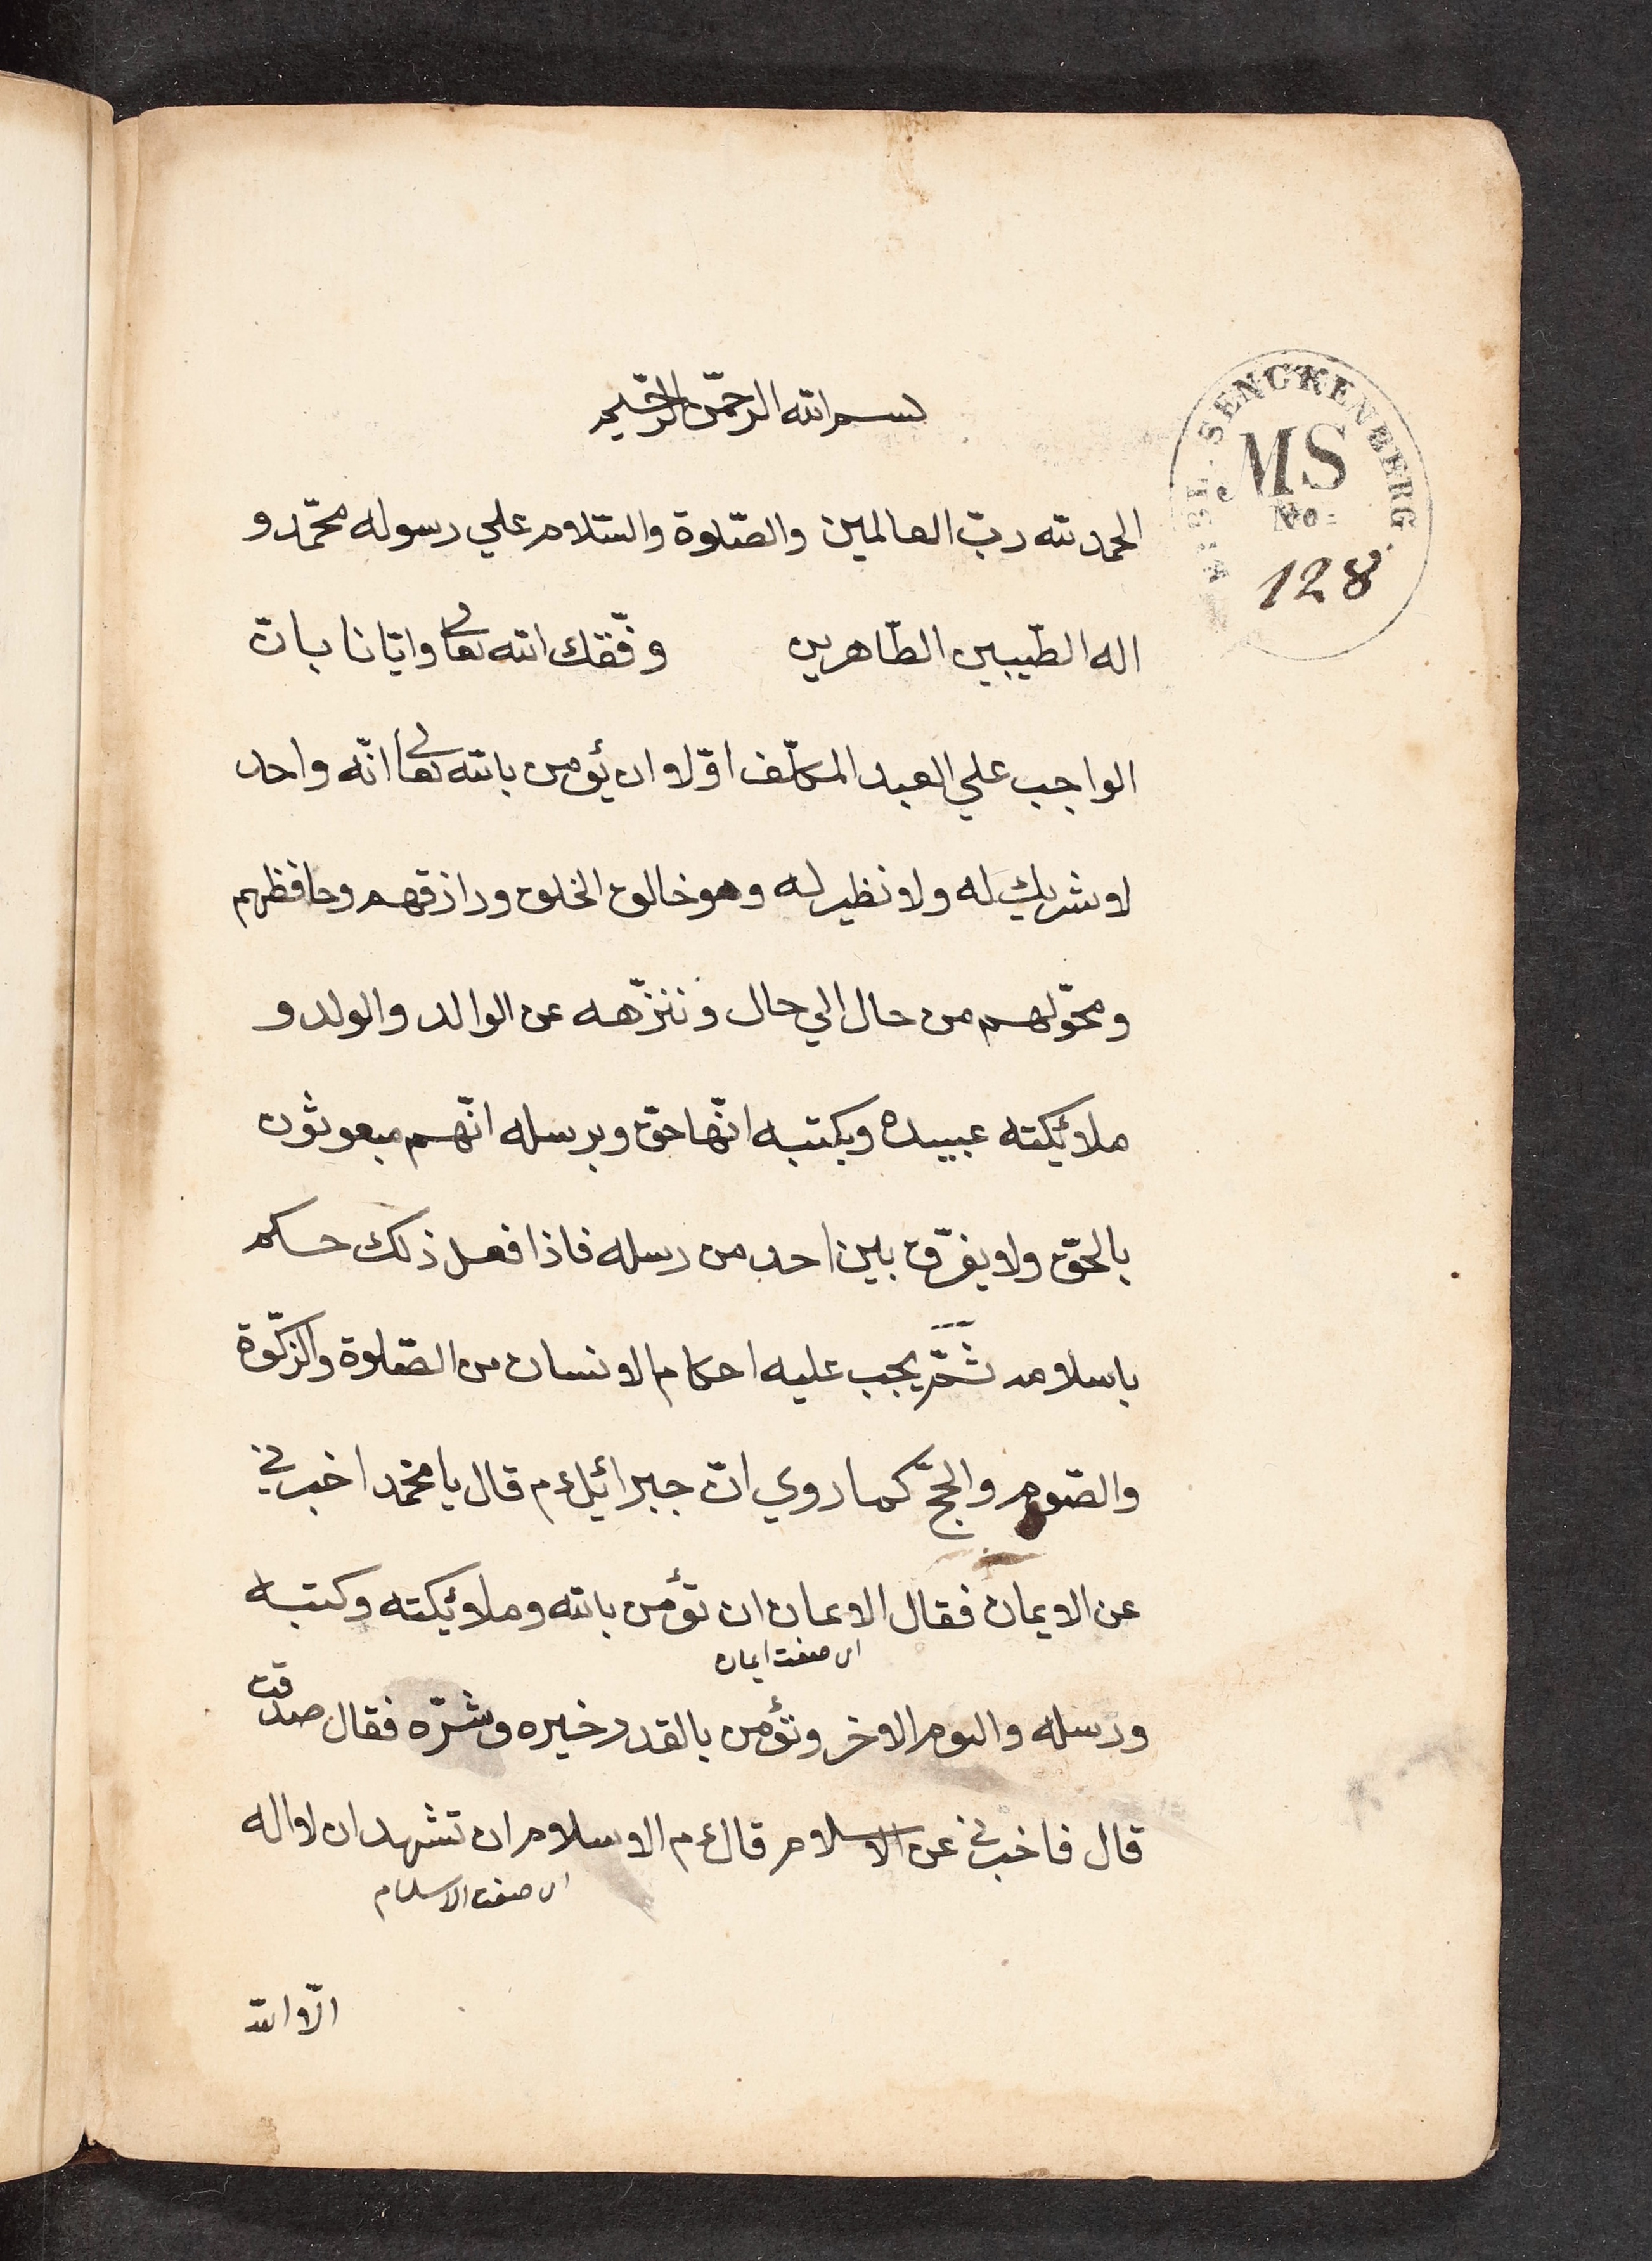 بسم الله الرحمن الرحيم
الحمد لله ربّ العالمين والصّلوة والسّلام علي رسوله محمّد و
اله الطّيبين الطّاهرين وفّقك الله تعالى وايّانا بان
الواجب علي العبد المكلّف اوّلا ان يؤمن بالله تعالى انّه واحد
لا شريك له ولا نظير له وهو خالق الخلق ورازقهم وحافظهم
ومحوّلهم من حال الي حال وننزّهه عن الوالد والولد و
ملائكته عبيده وبكتبه انّها حق وبرسله انّهم مبعوثون
بالحقّ ولا يفرّق بين احد من رسله فاذا فعل ذلك حكم
باسلامه ثمّ يجب عليه احكام الانسان من الصّلوة والزكوة
والصّوم والحجّ كما روي انّ جبرائيل ءم قال يا محمّد اخبرني
عن الايمان فقال الايمان ان تؤمن بالله وملائكته وكتبه
اى صفت ايمان
ورسله واليوم الاخر وتؤمن بالقدر خيره وشرّه فقال صدقت
قال فاخبرني عن الاسلام قال ءم الاسلام ان تشهد ان لا اله
اى صفت الاسلام
الّا الله
BIBL. SENCKENBERG.
MS
No=
128.